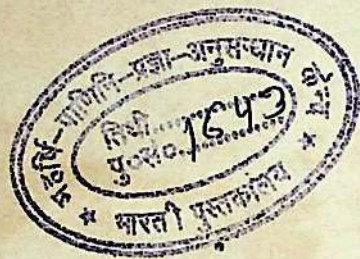 महर्षि-पाणिनि-प्रज्ञा-अनुसन्धान केन्द्र
तिथी..........
पु०सं०..........
* भारती पुस्तकालय *